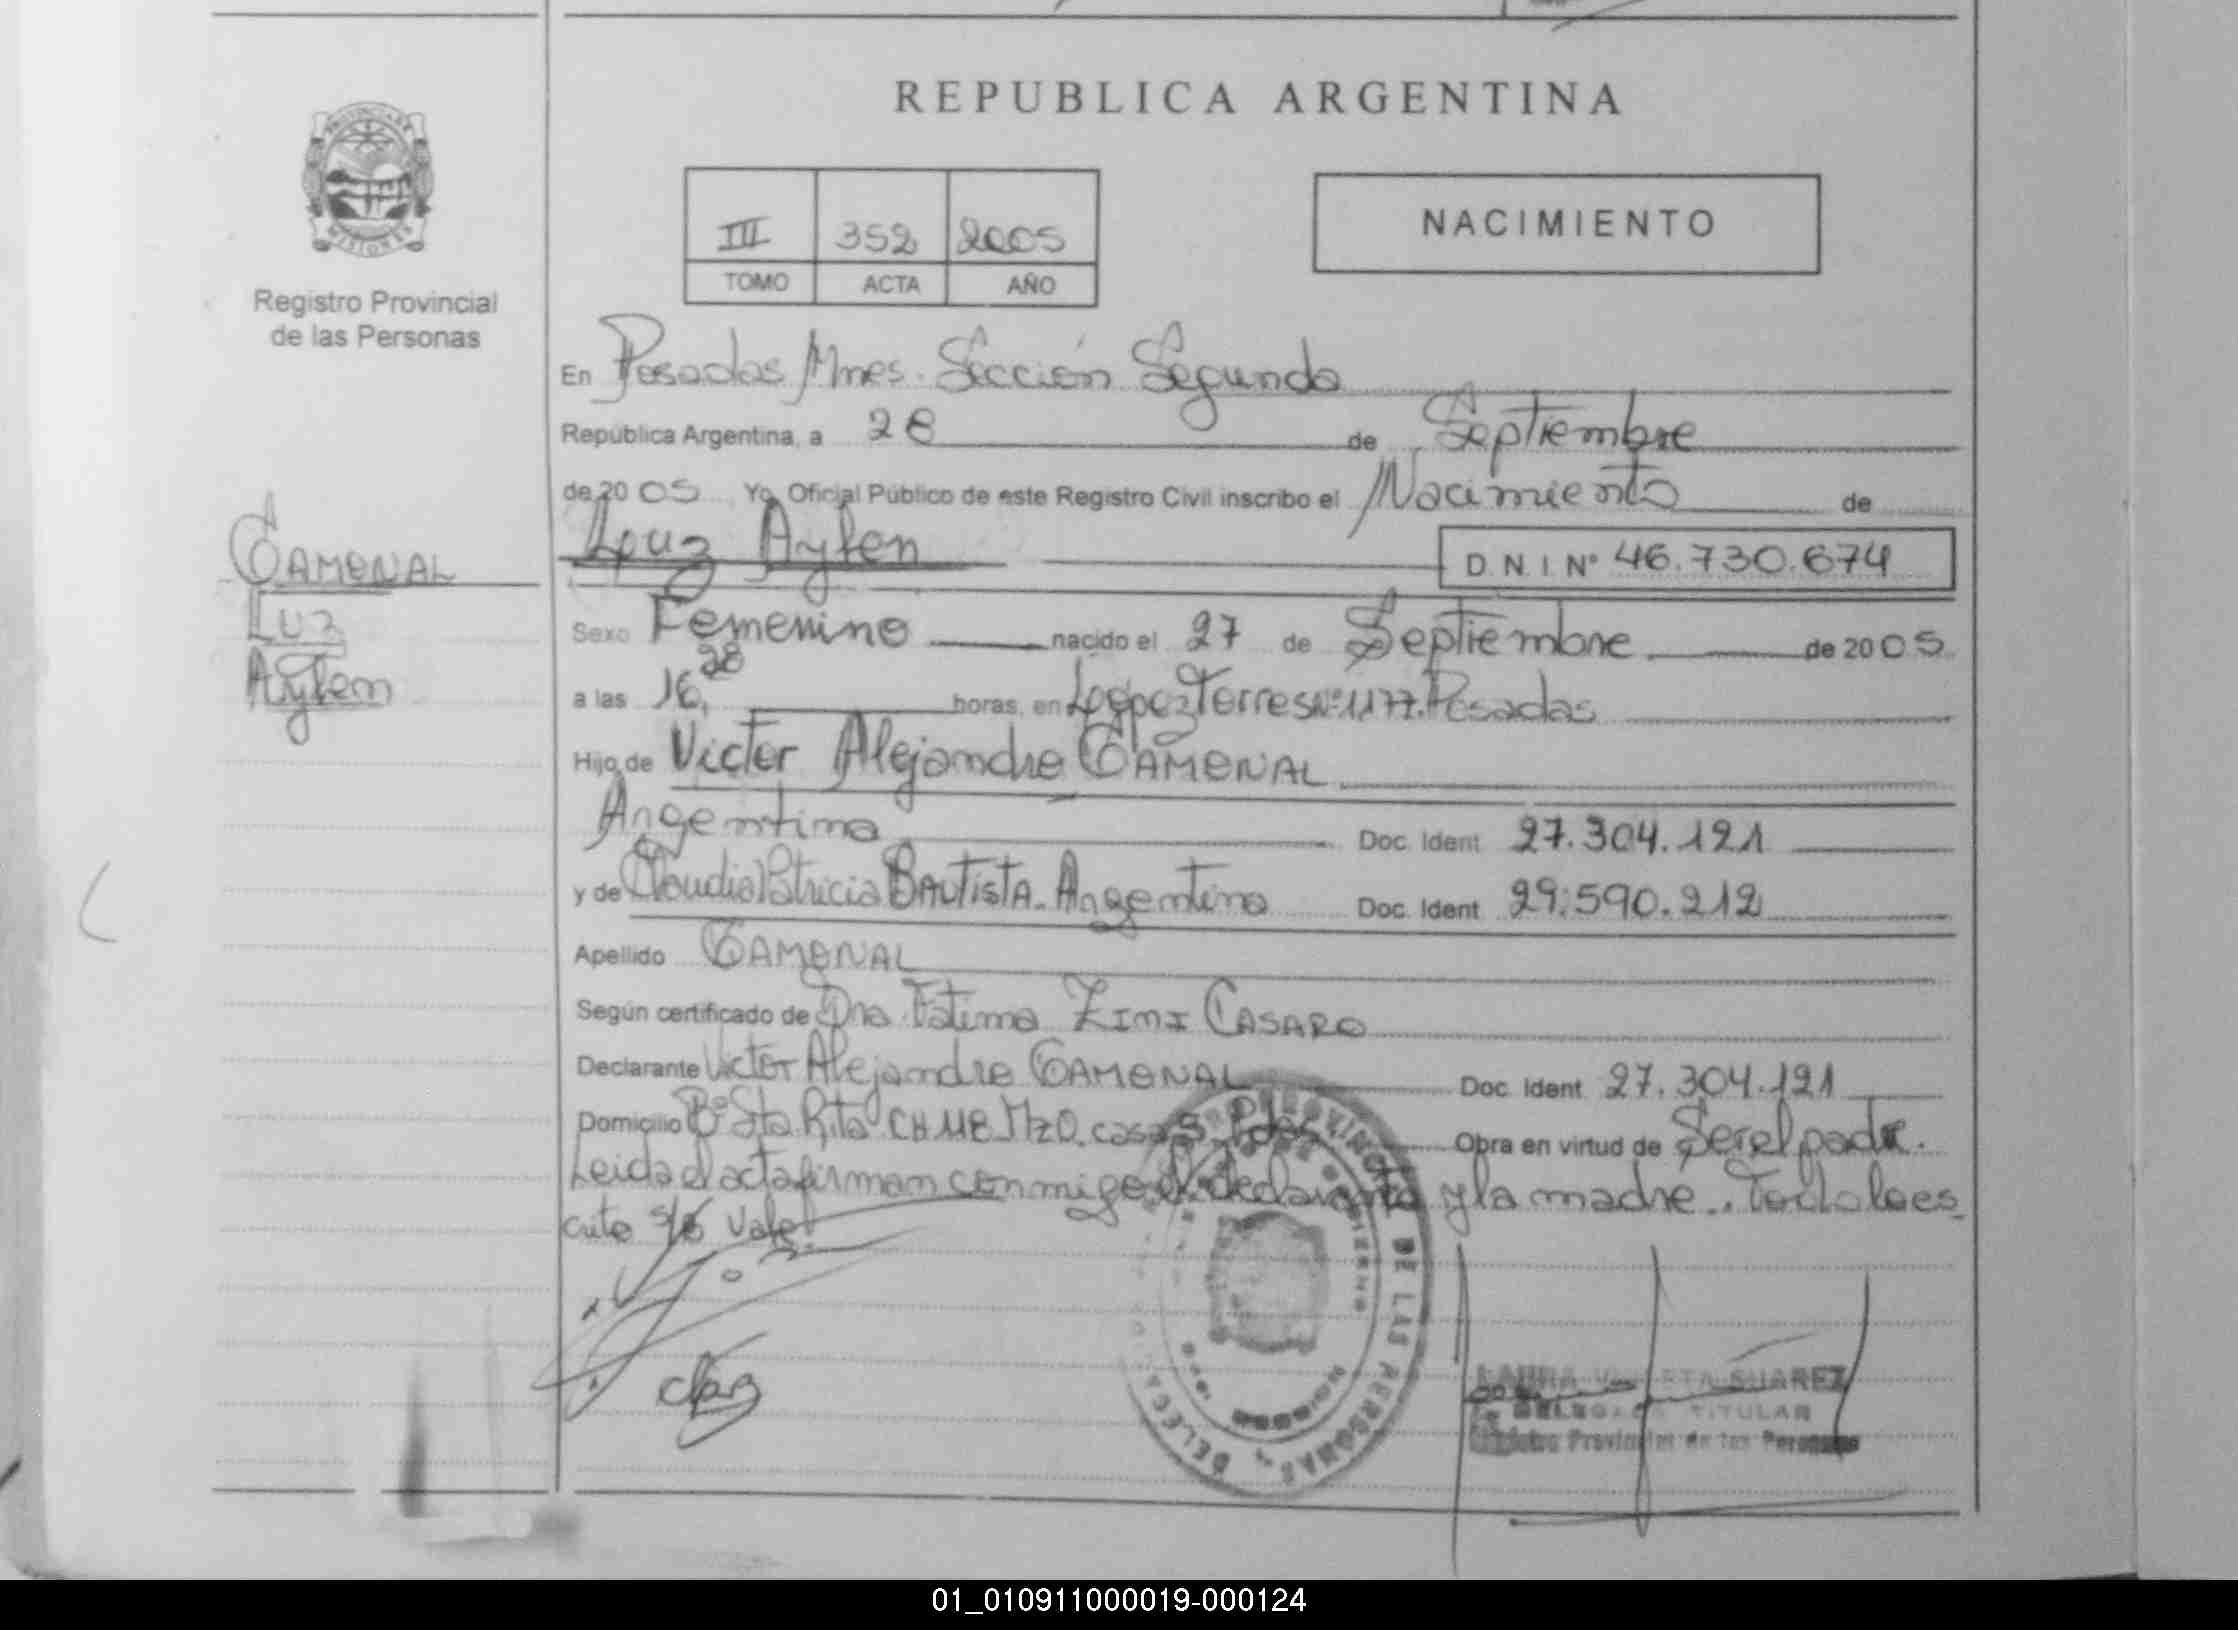 REPUBLICA ARGENTINA
PROVINCIA DE
MISIONES
Registro Provincial
de las Personas
III 352 2005
TOMO ACTA AÑO
NACIMIENTO
En Posadas Mnes. Sección Segunda
República Argentina, a 28 de Septiembre
de 2005 Yo, Oficial Público de este Registro Civil inscribo el Nacimiento de
Luz Aylen
D.N.I. N° 46.730.674
GAMONAL
Luz
Aylen
Sexo Femenino nacido el 27 de Septiembre de 2005
a las 16,28 horas, en López Torres N° 1177. Posadas
Hijo de Victor Alejandro GAMONAL
Argentino Doc. Ident 27.304.121
y de Claudia Patricia BAUTISTA. Argentina Doc. Ident 29.590.212
Apellido GAMONAL
Según certificado de Dra. Fatima ZIMI CASARO
Declarante Victor Alejandro GAMONAL Doc. Ident 27.304.121
Domicilio B° Sta. Rita CH 118 Mz D. casa 5. Pdas Obra en virtud de Ser el padre.
Leida el acta firman conmigo el declarante y la madre. Todo lo es
crito s/b Vale!
DE LAS PERSONAS
LAURA SUAREZ
DELEGADA TITULAR
Registro Provincial de las Personas
01_010911000019-000124